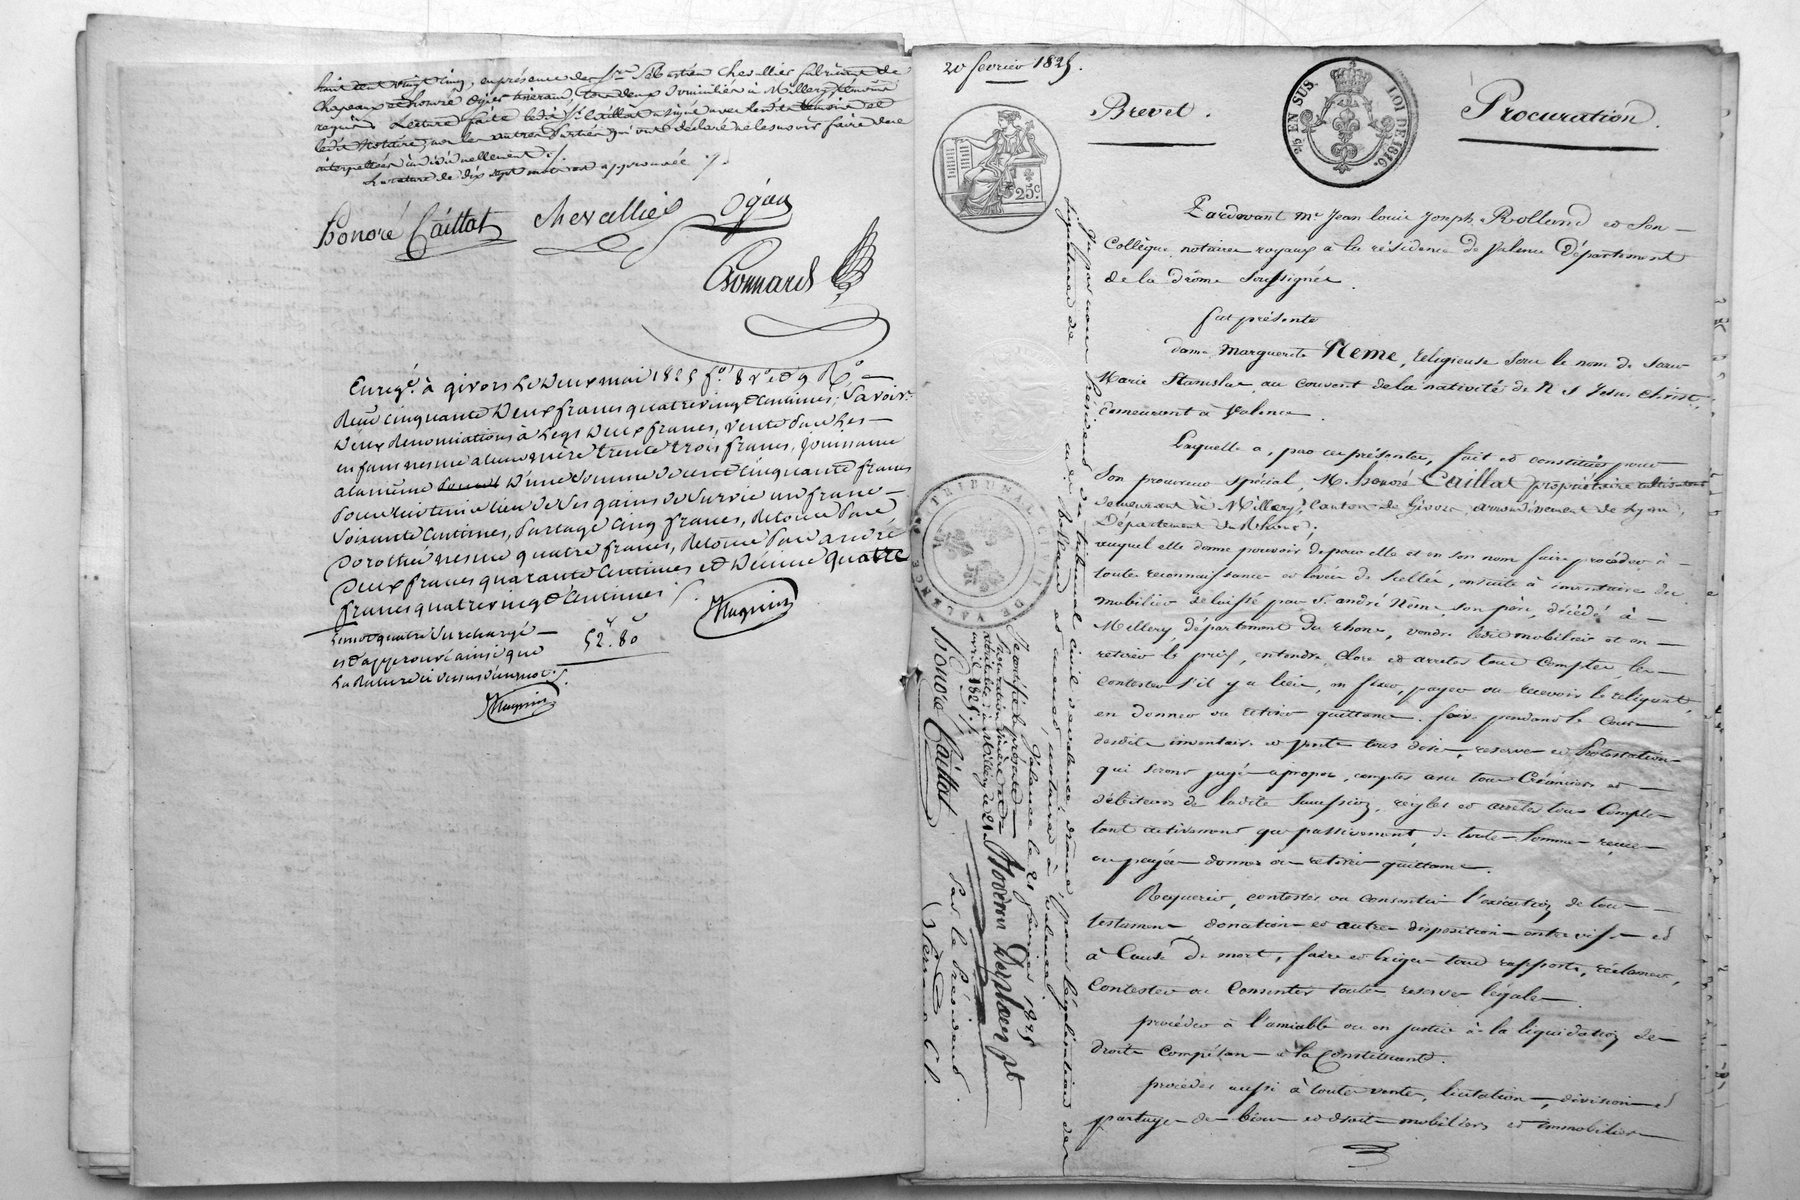 huit cent vingt cinq, en présence des Srs Sébastien Chevallier fabricant de
chapeaux et honoré Ogier tous deux domiciliés à Millery témoins
requis Lecture faite ledit Sr Caillat a signé avec les témoins et
ledit Notaire, non les autres parties qui ont déclaré ne le savoir faire de ce
interpellés individuellement ./.
La rature de dix sept mots est approuvée ./.
honoré Caillat chevallier Ogier
Bonnard
Enregé. à givors le deux mai 1825 fo. 8 Vo et 9 Ro
Reçu cinquante deux francs quatrevingt Centimes, Savoir.
deux Renonciations à legs deux francs, vente par les
trente trois francs, jouissance
d'une somme de cent cinquante francs
pour lui tenir lieu de ses gains de survie un franc
soixante Centimes, partage cinq francs, Retour par
Dorothée nesme quatre francs, Retour par andré
deux francs quarante Centimes et décime quatre
francs quatrevingt Centimes ./.
Le mot quatre surchargé
est approuvé ainsi que
la Rature ci dessus d'un mot ./.
52. 80
20 fevrier 1825.
Brevet.
Procuration.
25 c.
2/10 EN SUS
LOI DE 1816.
Pardevant Me Jean Louis Joseph Rolland et Son
Collègue, notaires royaux à la résidence de Valence Département
de la drôme Soussignés.
fut présente
dame Marguerite Neme, religieuse sous le nom de sœur
Marie Stanislas, au couvent de la nativité de N S Jésus Christ,
demeurant à Valence.
Laquelle a, par ces présentes, fait et constitué pour
Son procureur spécial, M. honoré Caillat propriétaire cultivateur
demeurant à Millery, Canton de Givors, arrondissement de Lyon,
Département du Rhône;
auquel elle donne pouvoir de pour elle et en son nom faire procéder à
toute reconnaissance et levée de scellés, ensuite à inventaire du
mobilier délaissé par Sr. andré Neme son père, décédé à
Millery, département du rhone, vendre ledit mobilier et en
retirer le prix, entendre, clore et arrêter tous comptes, les
contester s'il y a lieu, en fixer, payer ou recevoir le reliquat,
en donner ou retirer quittance. faire pendant le Cours
desdits inventaire et vente tous dires, reserves et Protestations
qui seront jugés apropos, compter avec tous Créanciers et
débiteurs de ladite Succession, régler et arrêter tous Comptes
tant activement que passivement, de toutes sommes reçues
ou payées donner ou retirer quittance.
Requerir, contester ou consentir l'exécution de tous
testamens, donations et autres dispositions entre vifs et
à Cause de mort, faire et exiger tous rapports, réclamer,
Contester ou Consentir toutes reserves légales.
procéder à l'amiable ou en justice à la liquidation des
droits Compétans à la Constituante.
procéder aussi à toutes ventes, licitation, division et
partage des biens et droits mobiliers et immobiliers
Vu par nous Président du tribunal civil de valence, drôme, pour légalisation des
signatures de Me Rolland et notaires à Valence,
Valence le 21 fevrier 1825
Par le Président
TRIBUNAL CIVIL DE VALENCE
Je certifie la présente
Procuration sincère et
véritable, à Millery le 21
avril 1825 ./.
honoré Caillat